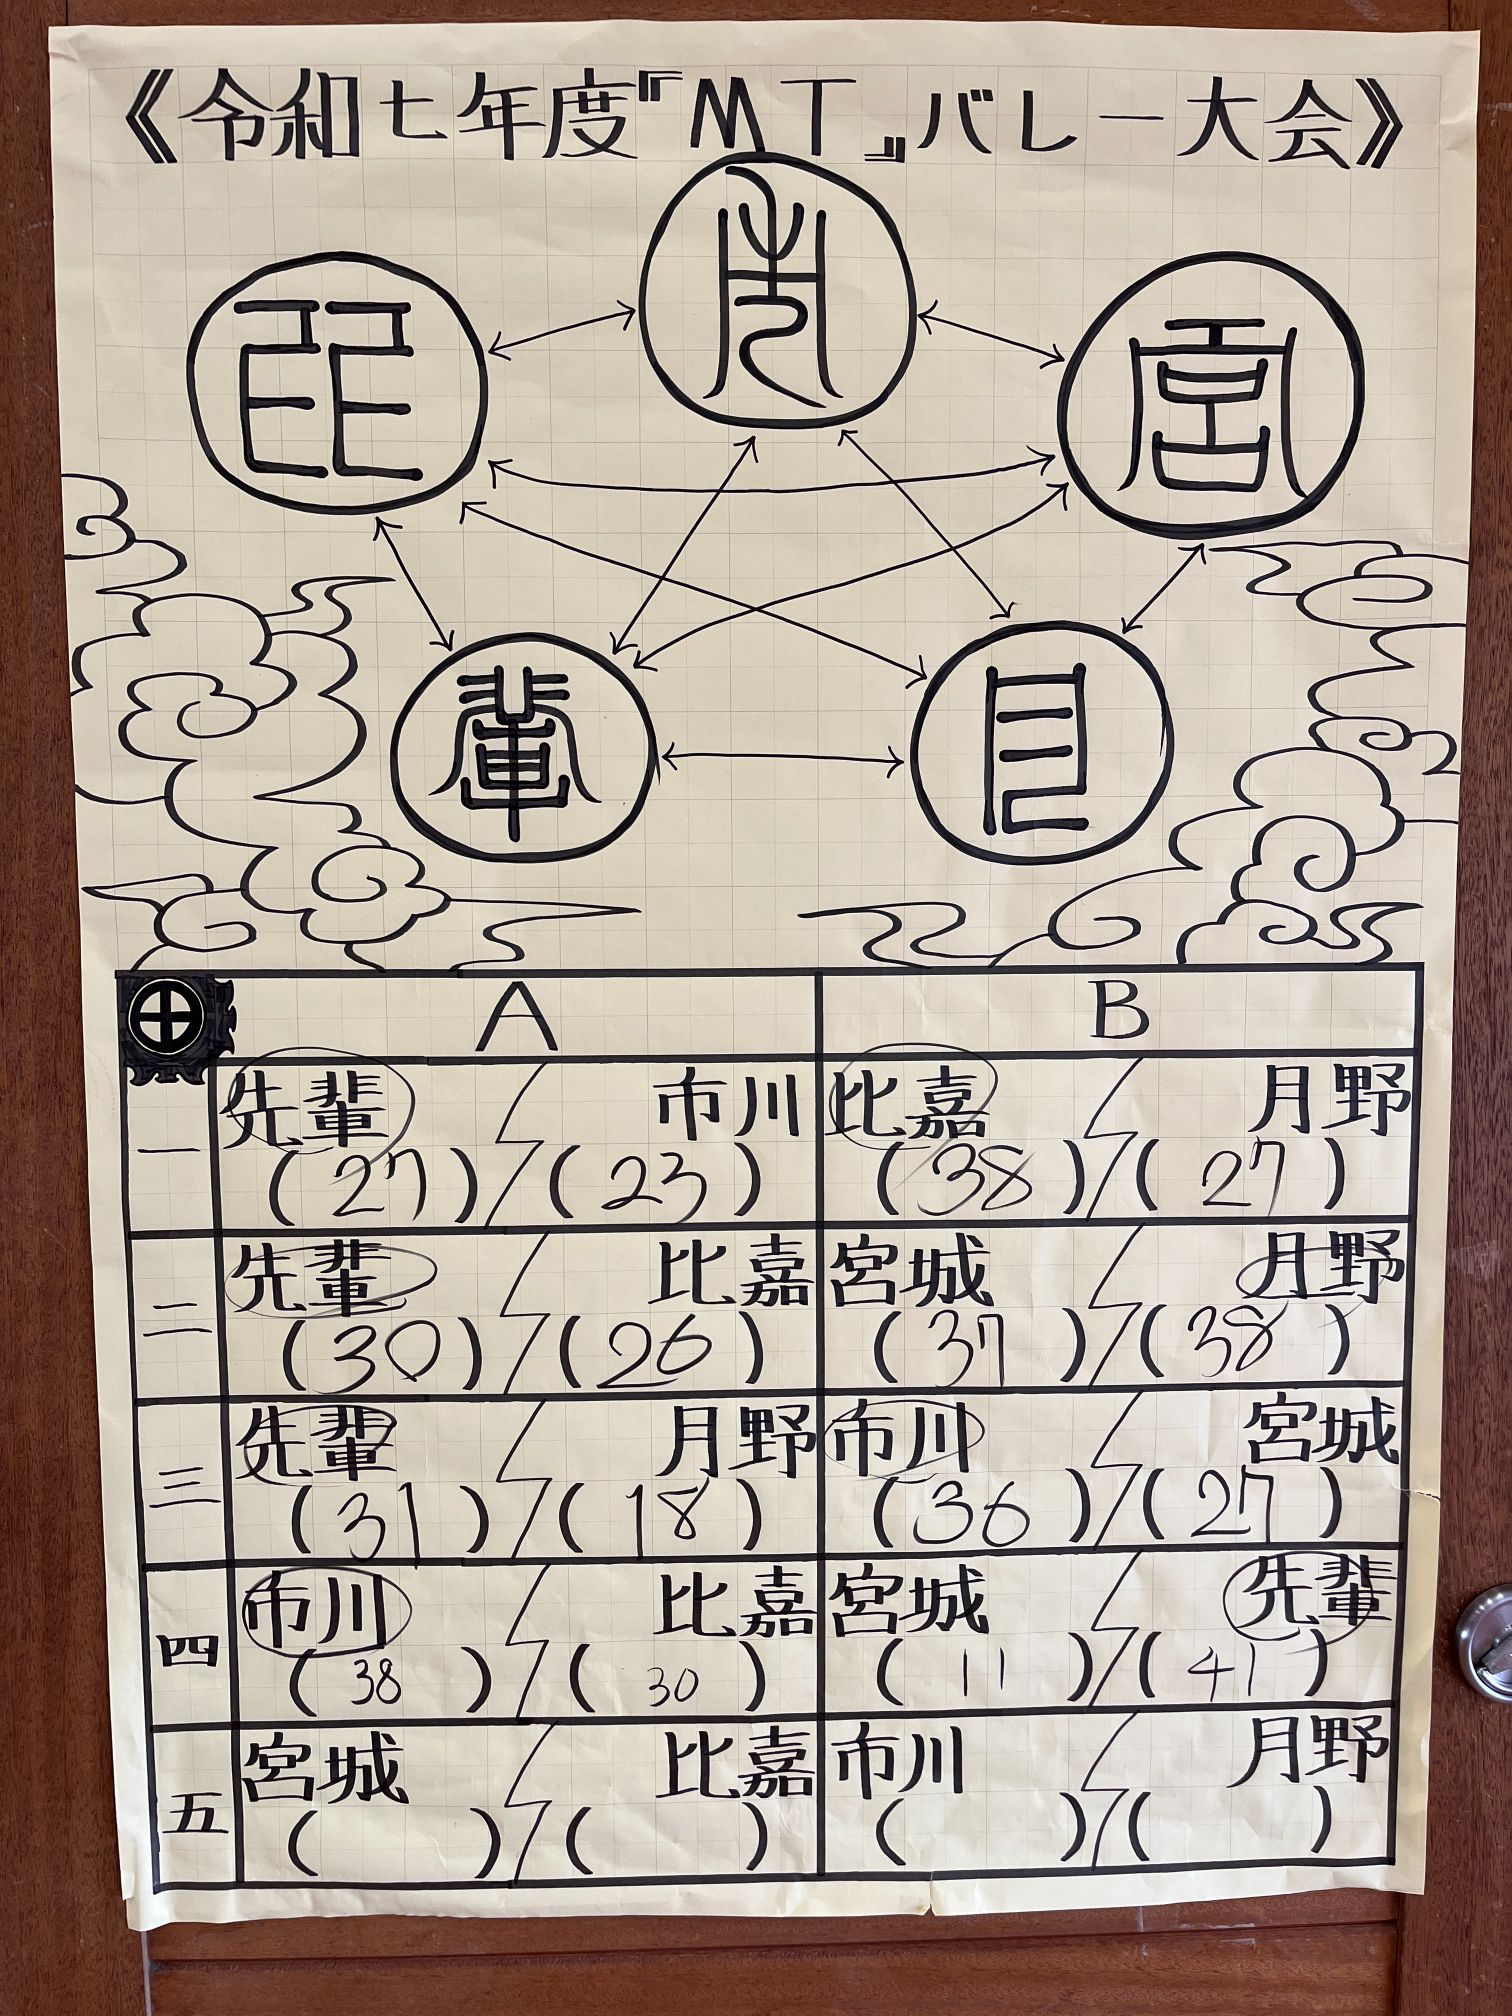 《令和七年度『MT』バレー大会》
市
比 宮
輩 月
A B
一 先輩 市川 比嘉 月野
(27) (23) (38) (27)
二 先輩 比嘉 宮城 月野
(30) (26) (37) (38)
三 先輩 月野 市川 宮城
(31) (18) (36) (27)
四 市川 比嘉 宮城 先輩
(38) (30) (11) (41)
五 宮城 比嘉 市川 月野
( ) ( ) ( ) ( )